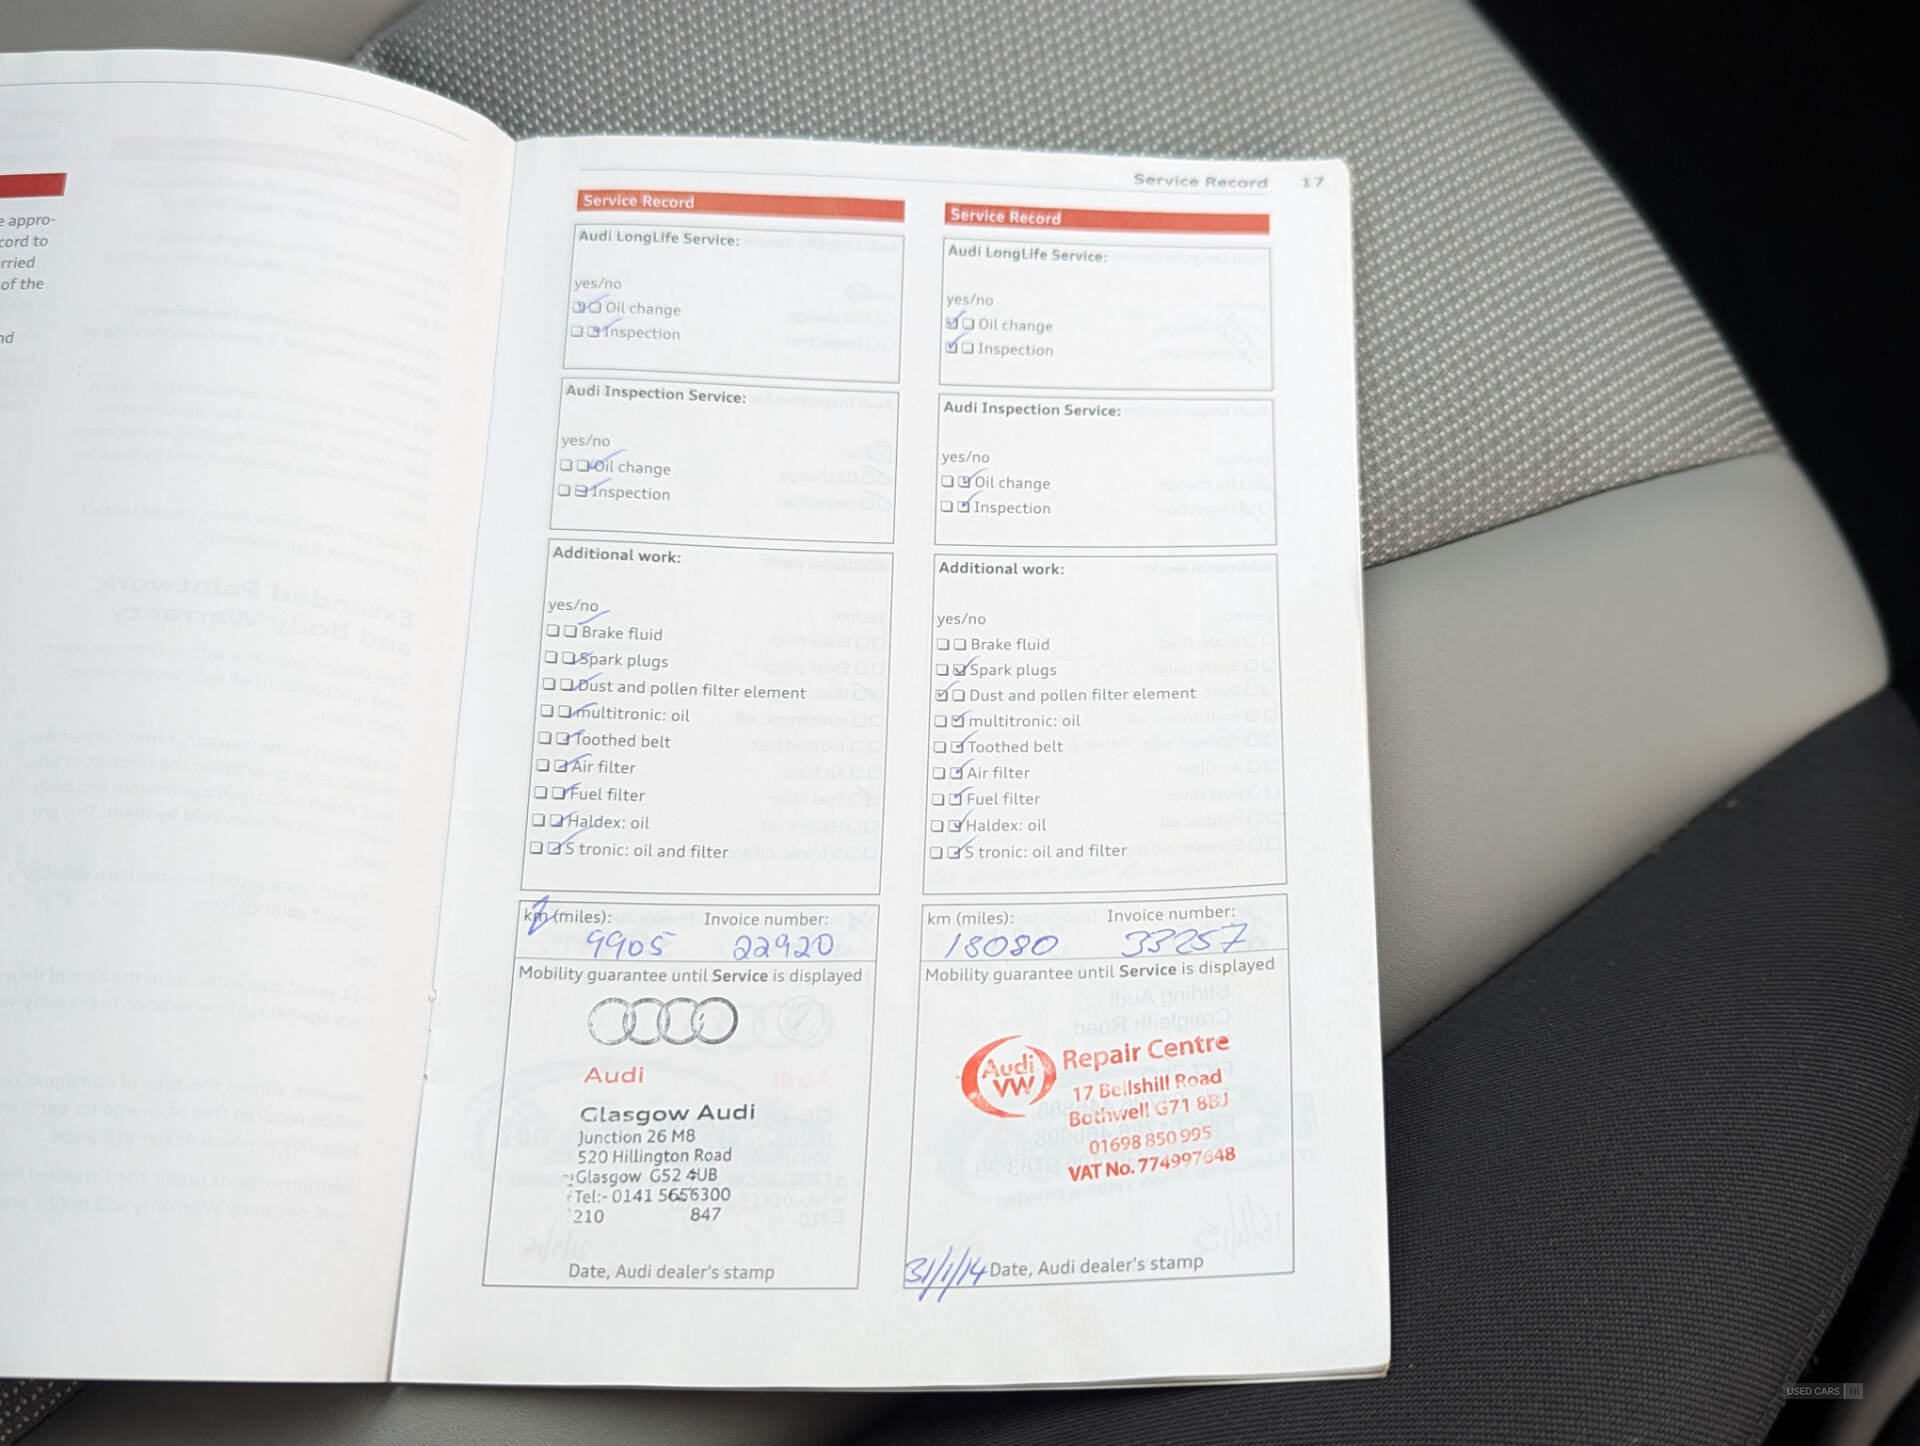 e appro-
cord to
rried
of the
nd
Service Record 17
Service Record
Audi LongLife Service:
yes/no
Oil change
Inspection
Audi Inspection Service:
yes/no
Oil change
Inspection
Additional work:
yes/no
Brake fluid
Spark plugs
Dust and pollen filter element
multitronic: oil
Toothed belt
Air filter
Fuel filter
Haldex: oil
S tronic: oil and filter
km (miles): Invoice number:
9905 22920
Mobility guarantee until Service is displayed
Audi
Glasgow Audi
Junction 26 M8
520 Hillington Road
Glasgow G52 4UB
Tel:- 0141 5656300
210 847
Date, Audi dealer's stamp
Service Record
Audi LongLife Service:
yes/no
Oil change
Inspection
Audi Inspection Service:
yes/no
Oil change
Inspection
Additional work:
yes/no
Brake fluid
Spark plugs
Dust and pollen filter element
multitronic: oil
Toothed belt
Air filter
Fuel filter
Haldex: oil
S tronic: oil and filter
km (miles): Invoice number:
18080 33257
Mobility guarantee until Service is displayed
Audi VW Repair Centre
17 Bellshill Road
Bothwell G71 8BJ
01698 850 995
VAT No. 774997648
31/1/14 Date, Audi dealer's stamp
USED CARS NI